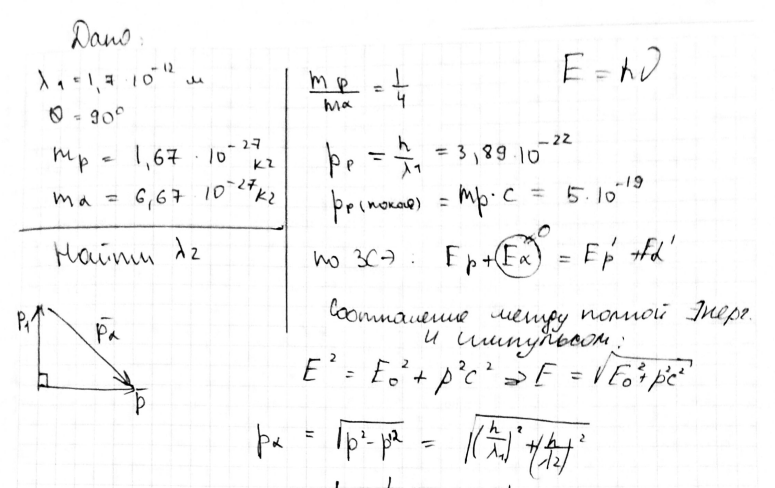 Дано:
λ₁ = 1,7 · 10⁻¹² м
θ = 90°
mp = 1,67 · 10⁻²⁷ кг
mα = 6,67 · 10⁻²⁷ кг
Найти λ₂
p₁
p̄α
p̄
mp/mα = 1/4
E = hν
pp = h/λ₁ = 3,89 · 10⁻²²
pp(покоя) = mp · c = 5 · 10⁻¹⁹
по ЗСЭ : Ep + Eα→0 = Ep' + Eα'
Соотношение между полной Энерг.
и импульсом:
E² = E₀² + p²c² ⇒ E = √(E₀² + p²c²)
pα = √(p² - p'²) = √((h/λ₁)² + (h/λ₂)²)